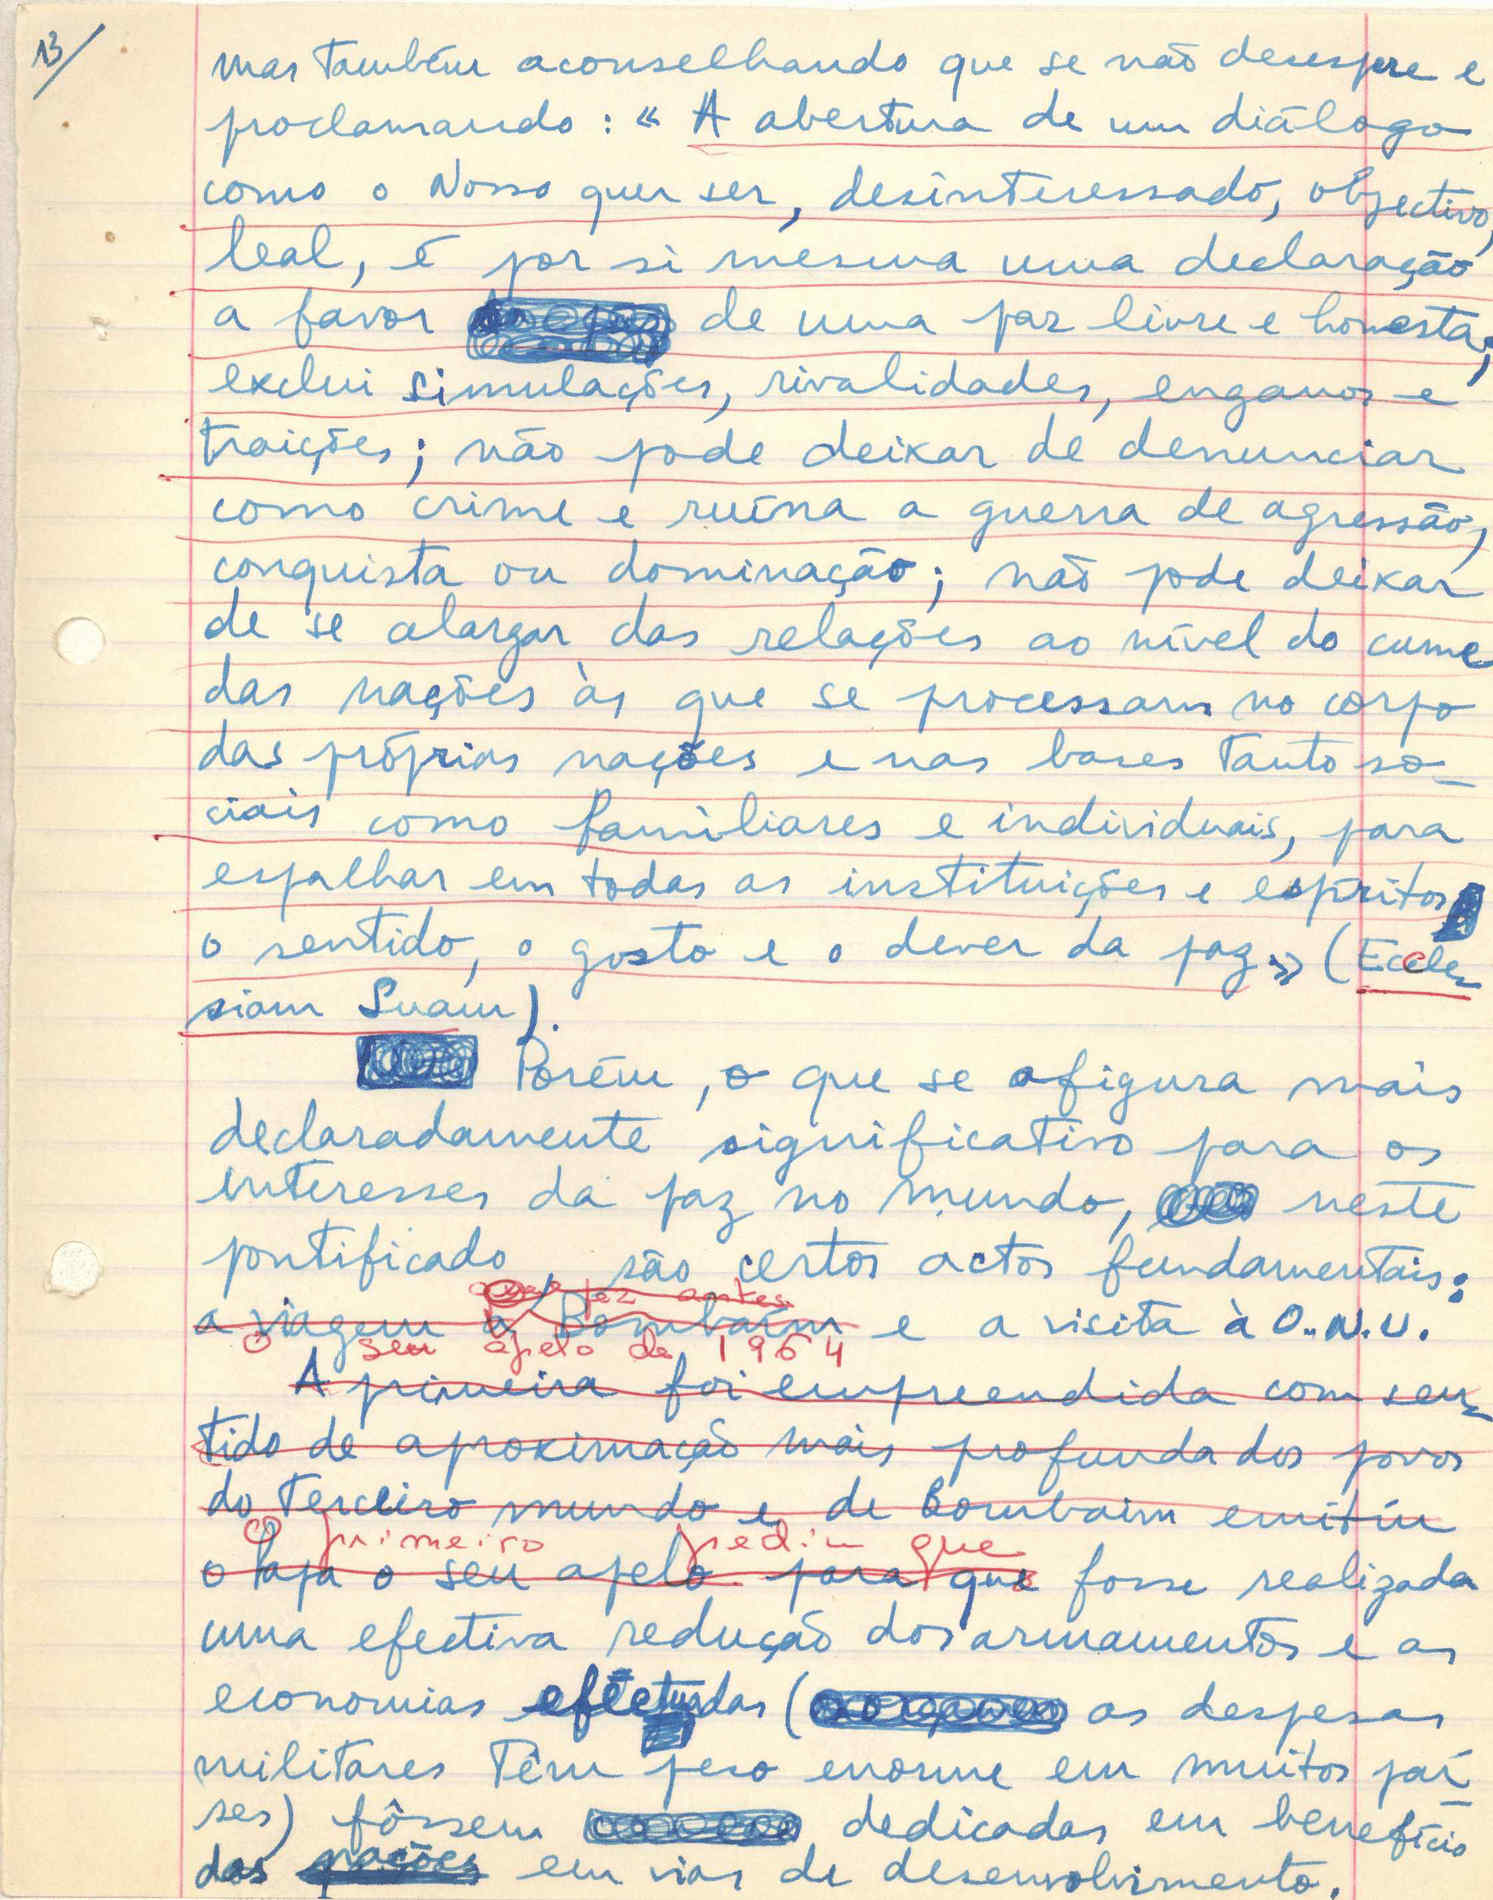 13/
mas também aconselhando que se não desespere e
proclamando : « A abertura de um diálogo
como o Nosso quer ser, desinteressado, objectivo,
leal, é por si mesma uma declaração
a favor de uma paz livre e honesta;
exclui simulações, rivalidades, enganos e
traições; não pode deixar de denunciar
como crime e ruína a guerra de agressão,
conquista ou dominação; não pode deixar
de se alargar das relações ao nível do cume
das nações às que se processam no corpo
das próprias nações e nas bases tanto so-
ciais como familiares e individuais, para
espalhar em todas as instituições e espíritos
o sentido, o gosto e o dever da paz» (Eccle-
siam Suam).
Porém, o que se afigura mais
declaradamente significativo para os
interesses da paz no mundo, neste
pontificado, são certos actos fundamentais:
que fez antes
a viagem a Bombaim e a visita à O.N.U.
o seu apelo de 1964
A primeira foi empreendida com sen-
tido de aproximação mais profunda dos povos
do terceiro mundo e de Bombaim emitiu
O primeiro pediu que
o Papa o seu apelo para que fosse realizada
uma efectiva redução dos armamentos e as
economias efectuadas ( as despesas
militares têm peso enorme em muitos paí-
ses) fôssem dedicadas em benefício
das nações em vias de desenvolvimento.